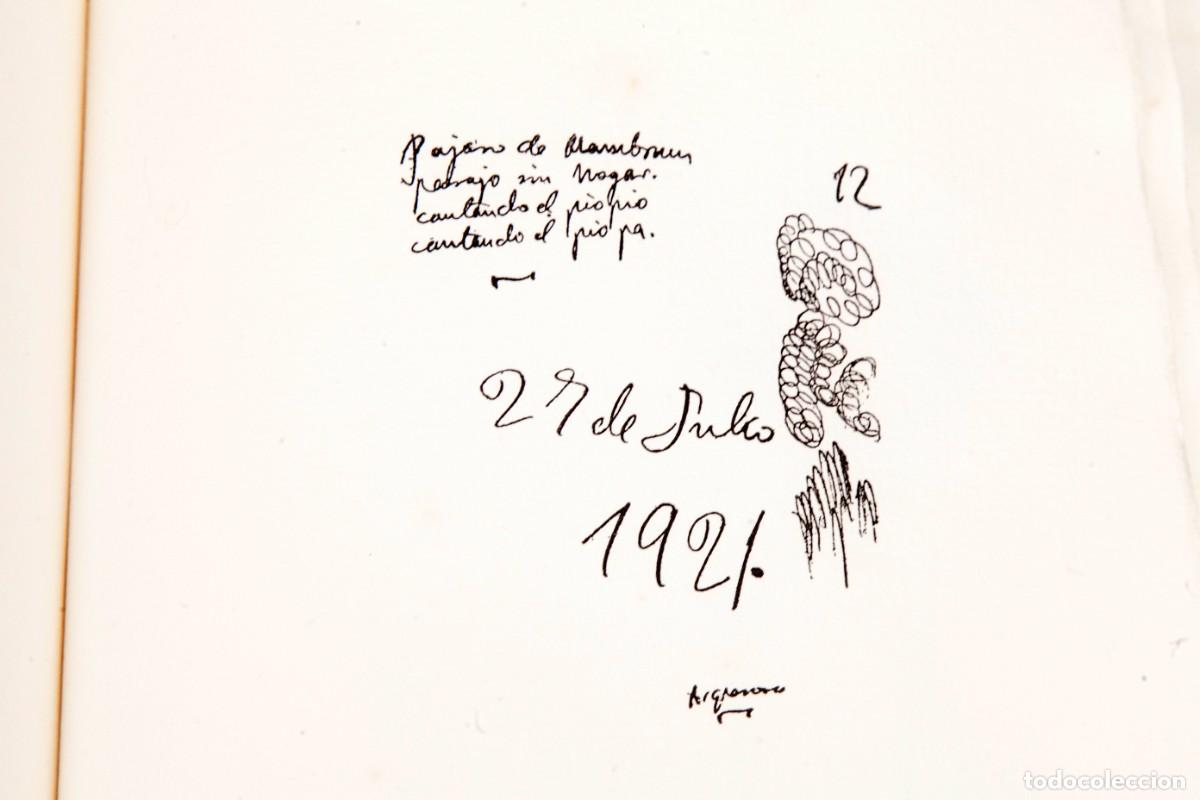 Pajaro de Mambrun
pedrajo sin hogar.
cantando el pio pio
cantando el pio pa.
12
27 de Julio
1921.
todocoleccion